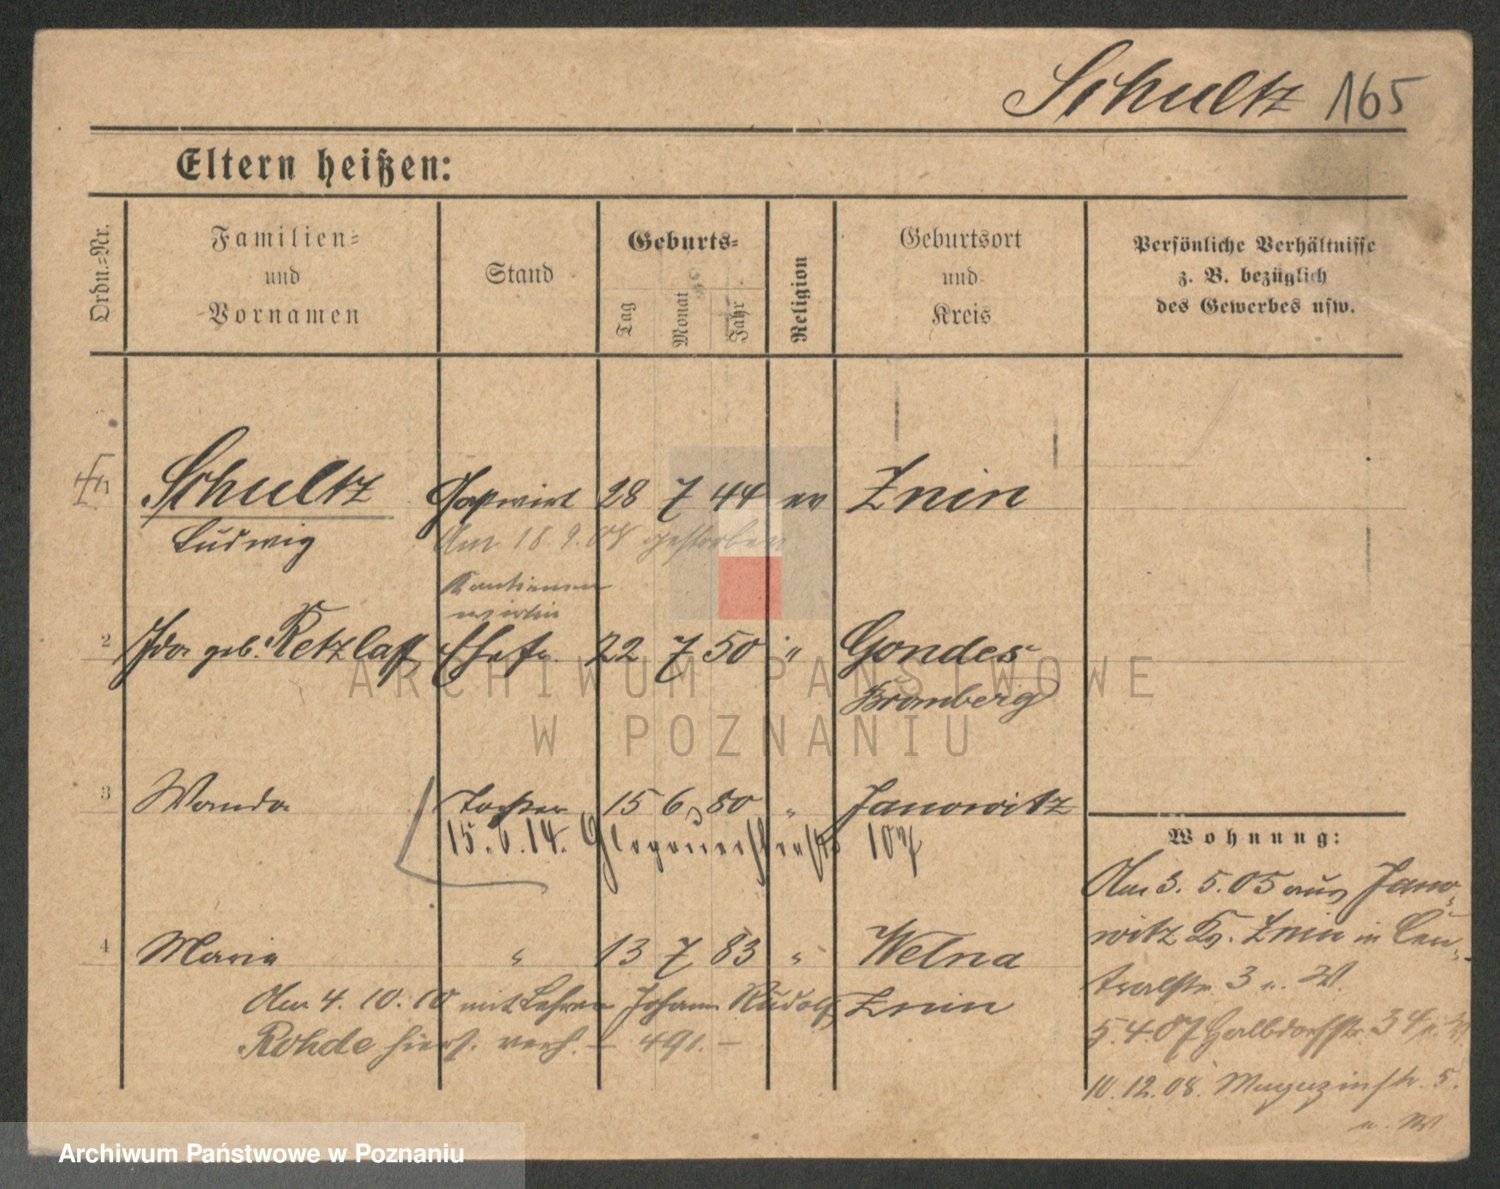 Schultz 165
Eltern heißen:
Ordn.-Nr.
Familien-
und
Vornamen
Stand
Geburts-
Tag
Monat
Jahr
Religion
Geburtsort
und
Kreis
Persönliche Verhältnisse
z. B. bezüglich
des Gewerbes usw.
1 Schultz Gastwirt 28 7 44 ev Znin
Ludwig Am 18.9.08 gestorben
Kantinen
wirtin
2 Ida geb. Retzlaff Ehefr. 22 7 50 " Gondes
Bromberg
3 Wanda Tochter 15 6 80 " Janowitz
15.6.14. Glogauerstraße 107
Wohnung:
Am 3. 5.05 aus Jano-
witz Kr. Znin in Cen-
tralstr. 3 u. W.
5.4.07 Halbdorfstr. 34 u. W
10.12.08. Magazinstr. 5.
u. W
4 Maria " 13 7 83 " Welna
Am 4.10.10 mit Lehrer Johann Rudolf Znin
Rohde hiers. verh. – 491. –
ARCHIWUM PAŃSTWOWE
W POZNANIU
Archiwum Państwowe w Poznaniu